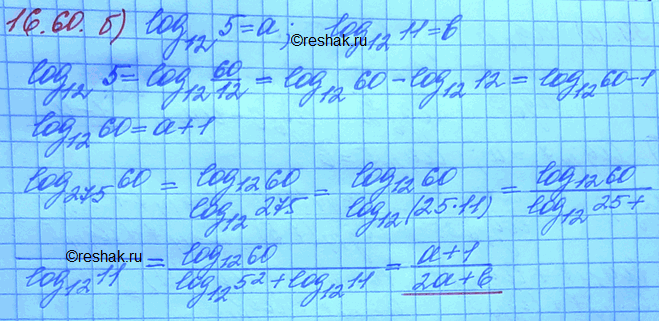 16.60. б) log₁₂ 5 = a; log₁₂ 11 = b
©reshak.ru ©reshak.ru
log₁₂ 5 = log₁₂ 60/12 = log₁₂ 60 - log₁₂ 12 = log₁₂ 60 - 1
log₁₂ 60 = a + 1
log₂₇₅ 60 = log₁₂ 60 / log₁₂ 275 = log₁₂ 60 / log₁₂ (25·11) = log₁₂ 60 / log₁₂ 25 +
©reshak.ru
/ log₁₂ 11 = log₁₂ 60 / log₁₂ 5² + log₁₂ 11 = a+1 / 2a+b
©reshak.ru